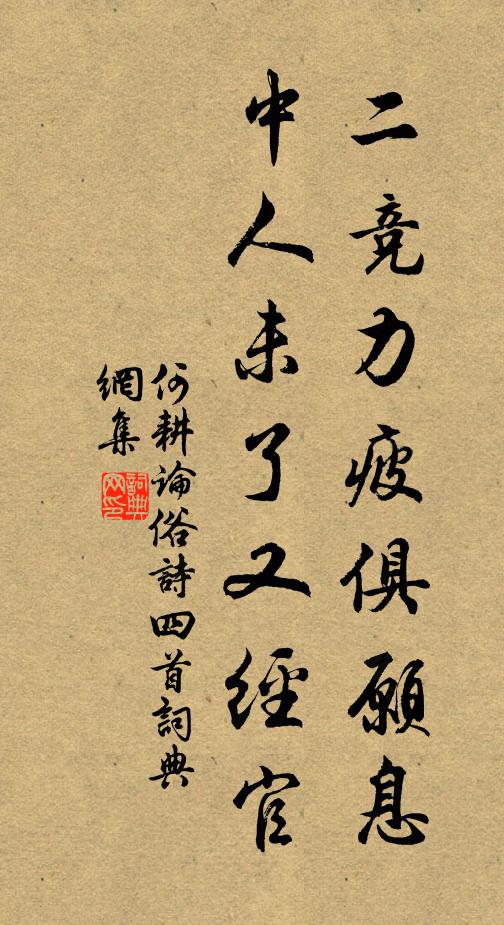 二竞力疲俱願息
中人未了又經官
何耕論俗詩四首詞典
網集
詞典網印